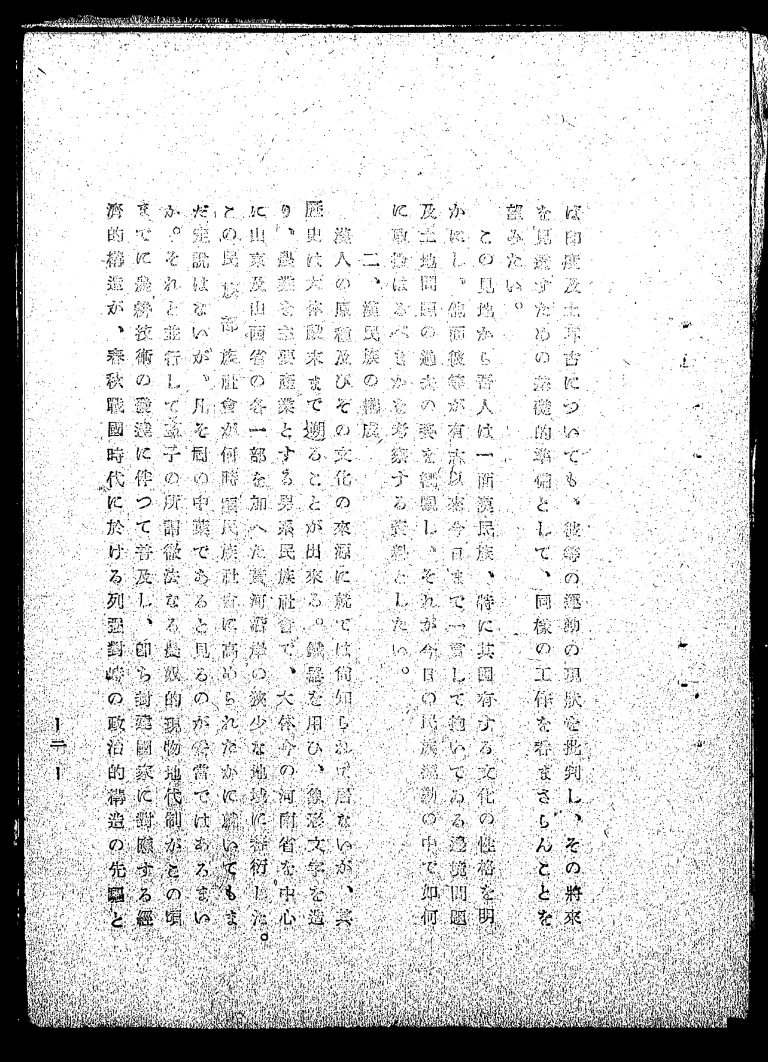 ば印度及土耳古についても、彼等の運動の現狀を批判し、その將來
を見透すための基礎的準備として、同樣の工作を吝まざらんことを
望みたい。
この見地から吾人は一面漢民族、特に其固有する文化の性格を明
かにし、他面彼等が有史以來今日まで一貫して抱いてゐる邊境問題
及土地問題の過去の姿を概觀し、それが今日の民族運動の中で如何
に取扱はるべきかを考察する資料としたい。
二、漢民族の構成
漢人の原種及びその文化の來源に就ては尙知られて居ないが、其
歷史は大体殷末まで遡ることが出來る。鐵器を用ひ、象形文字を造
り、農業を主要産業とする男系民族社會で、大体今の河南省を中心
に山東及山西省の各一部を加へた黃河沿岸の狹少な地域に蕃衍した。
この民族部族社會が何時頃民族社會に高められたかに就いてもま
だ定說はないが、凡そ周の中葉であると見るのが妥當ではあるまい
か。それと並行して孟子の所謂徹法なる農奴的現物地代制がこの頃
までに農耕技術の發達に伴つて普及し、卽ち封建國家に對應する經
濟的構造が、春秋戰國時代に於ける列强對峙の政治的構造の先驅と